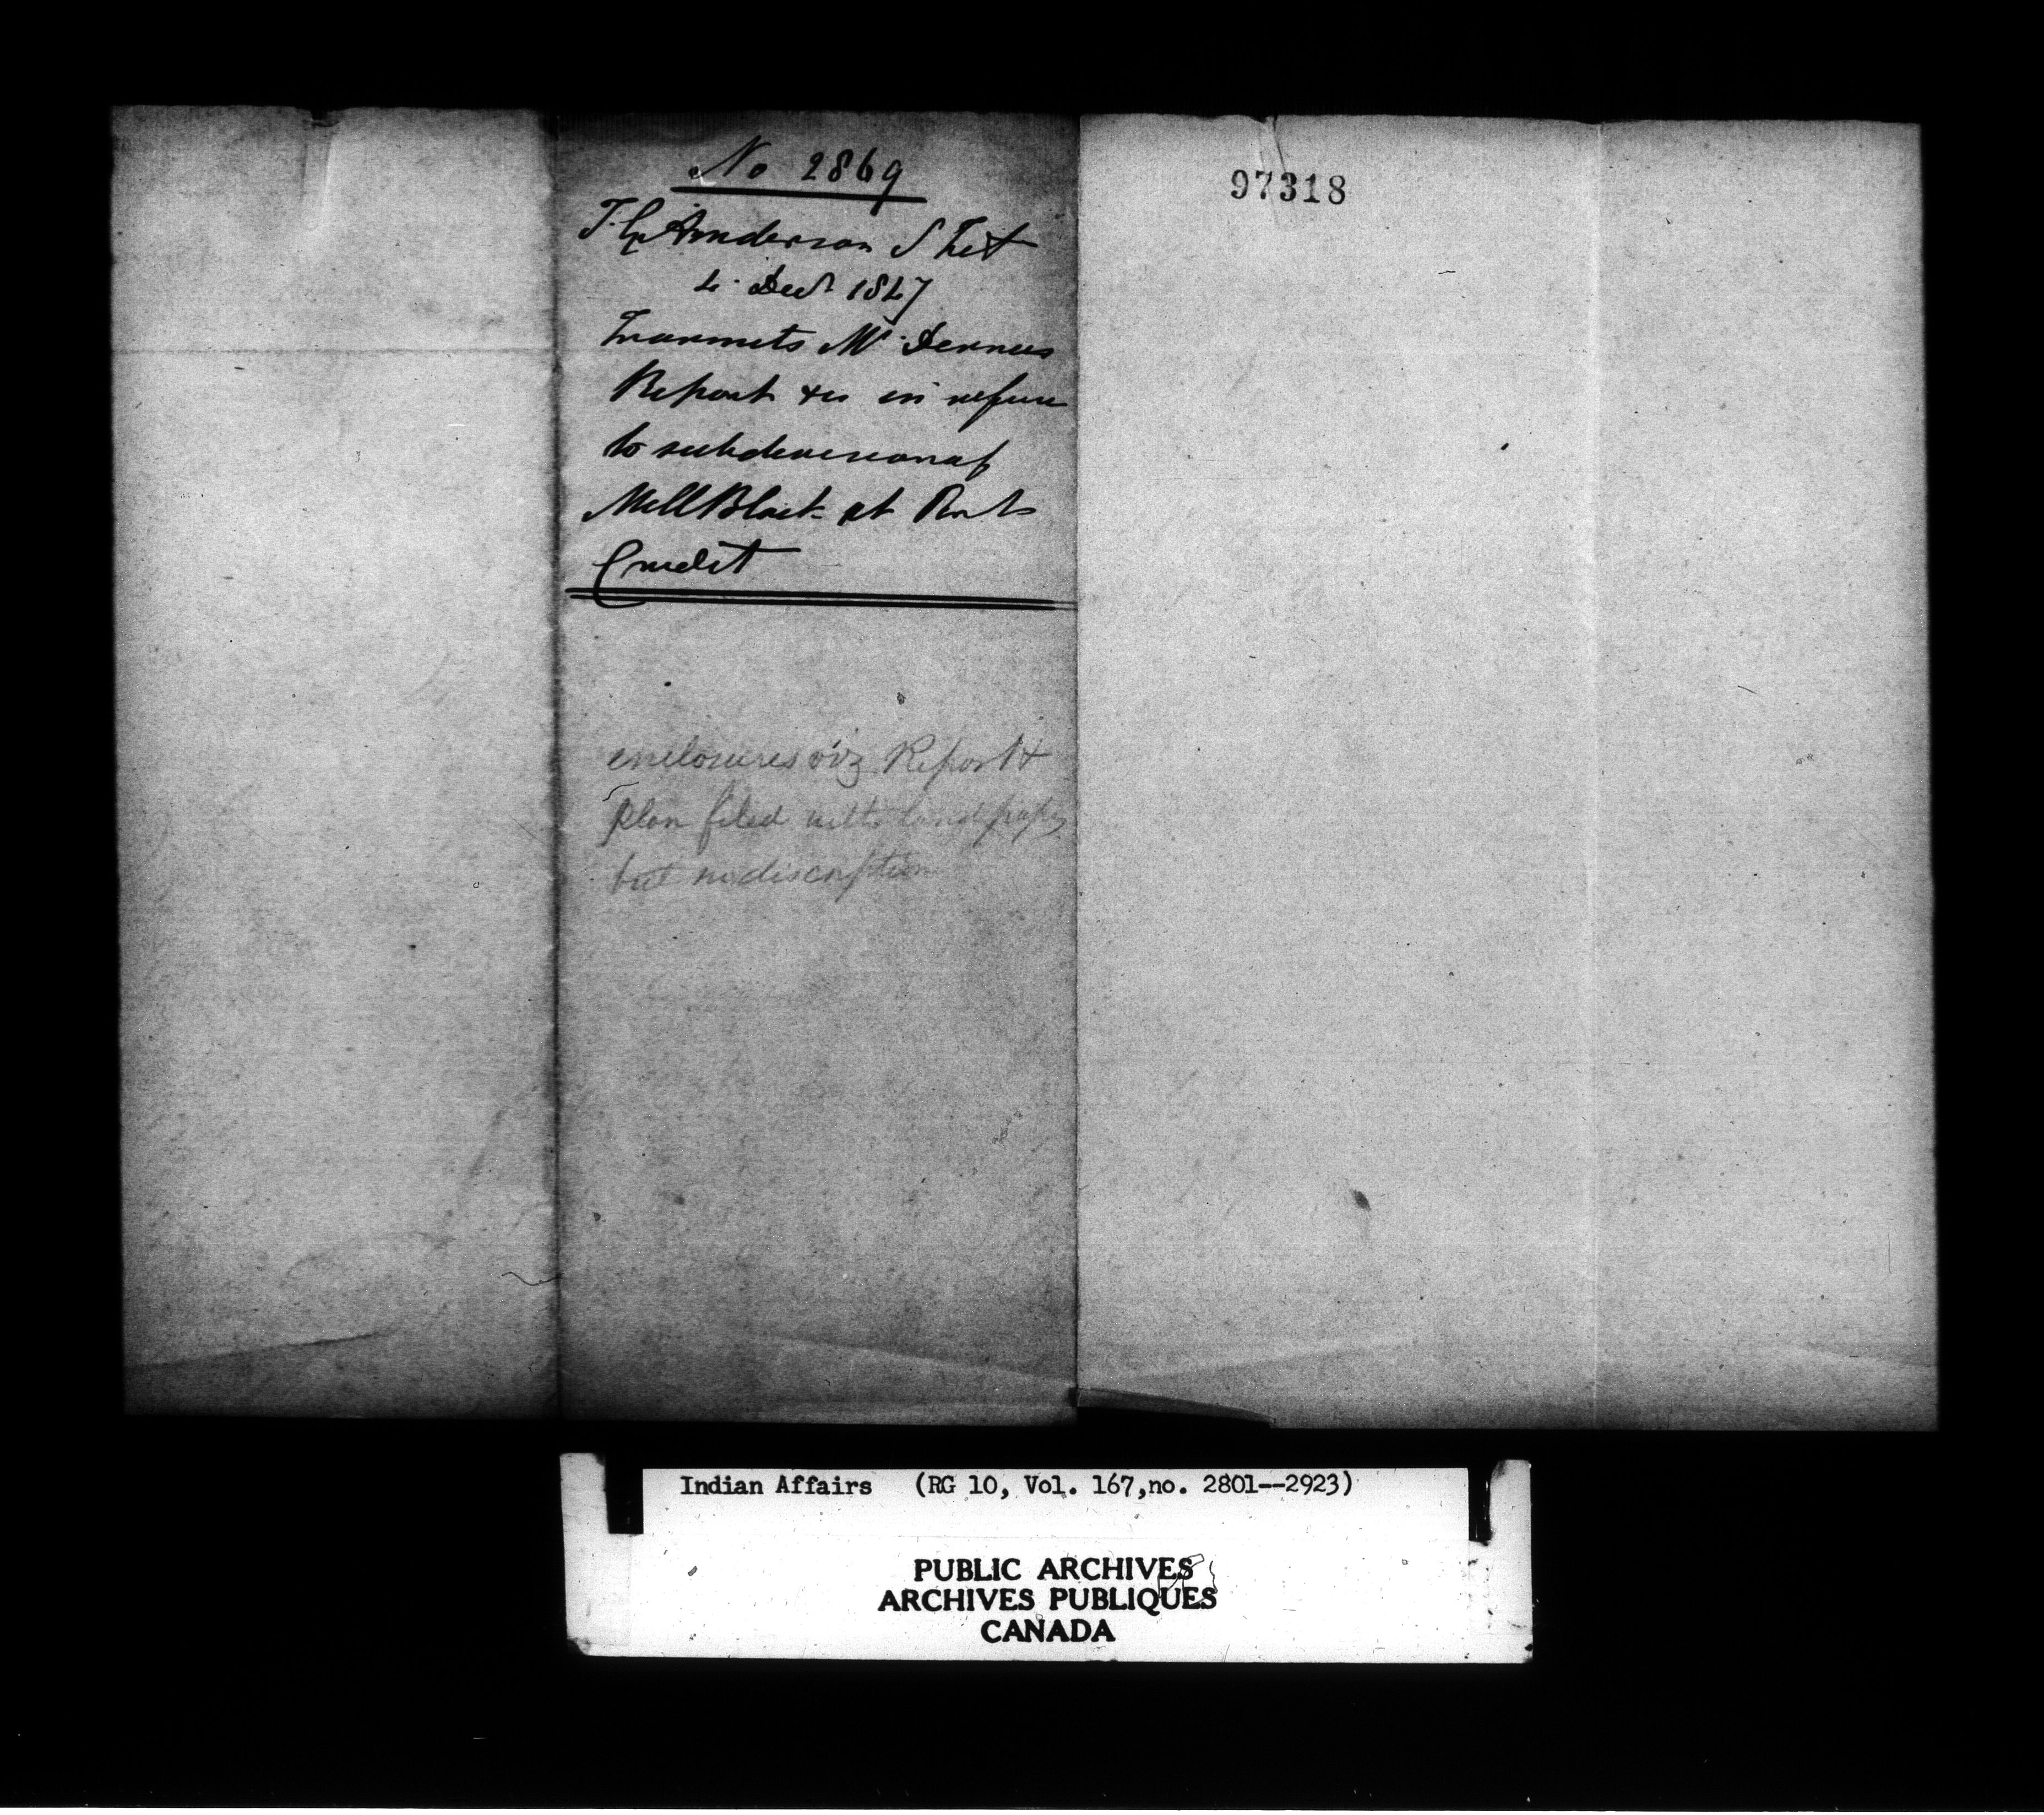 No 2869
T.G. Anderson S Int
4. Decr 1847
Transmits Mr. Dennis
Report &c in refnce
to subdivision of
Mill Block at Port
Credit
enclosures viz Report &
plan filed with land papers
but no discription
97318
Indian Affairs (RG 10, Vol. 167,no. 2801--2923)
PUBLIC ARCHIVES
ARCHIVES PUBLIQUES
CANADA